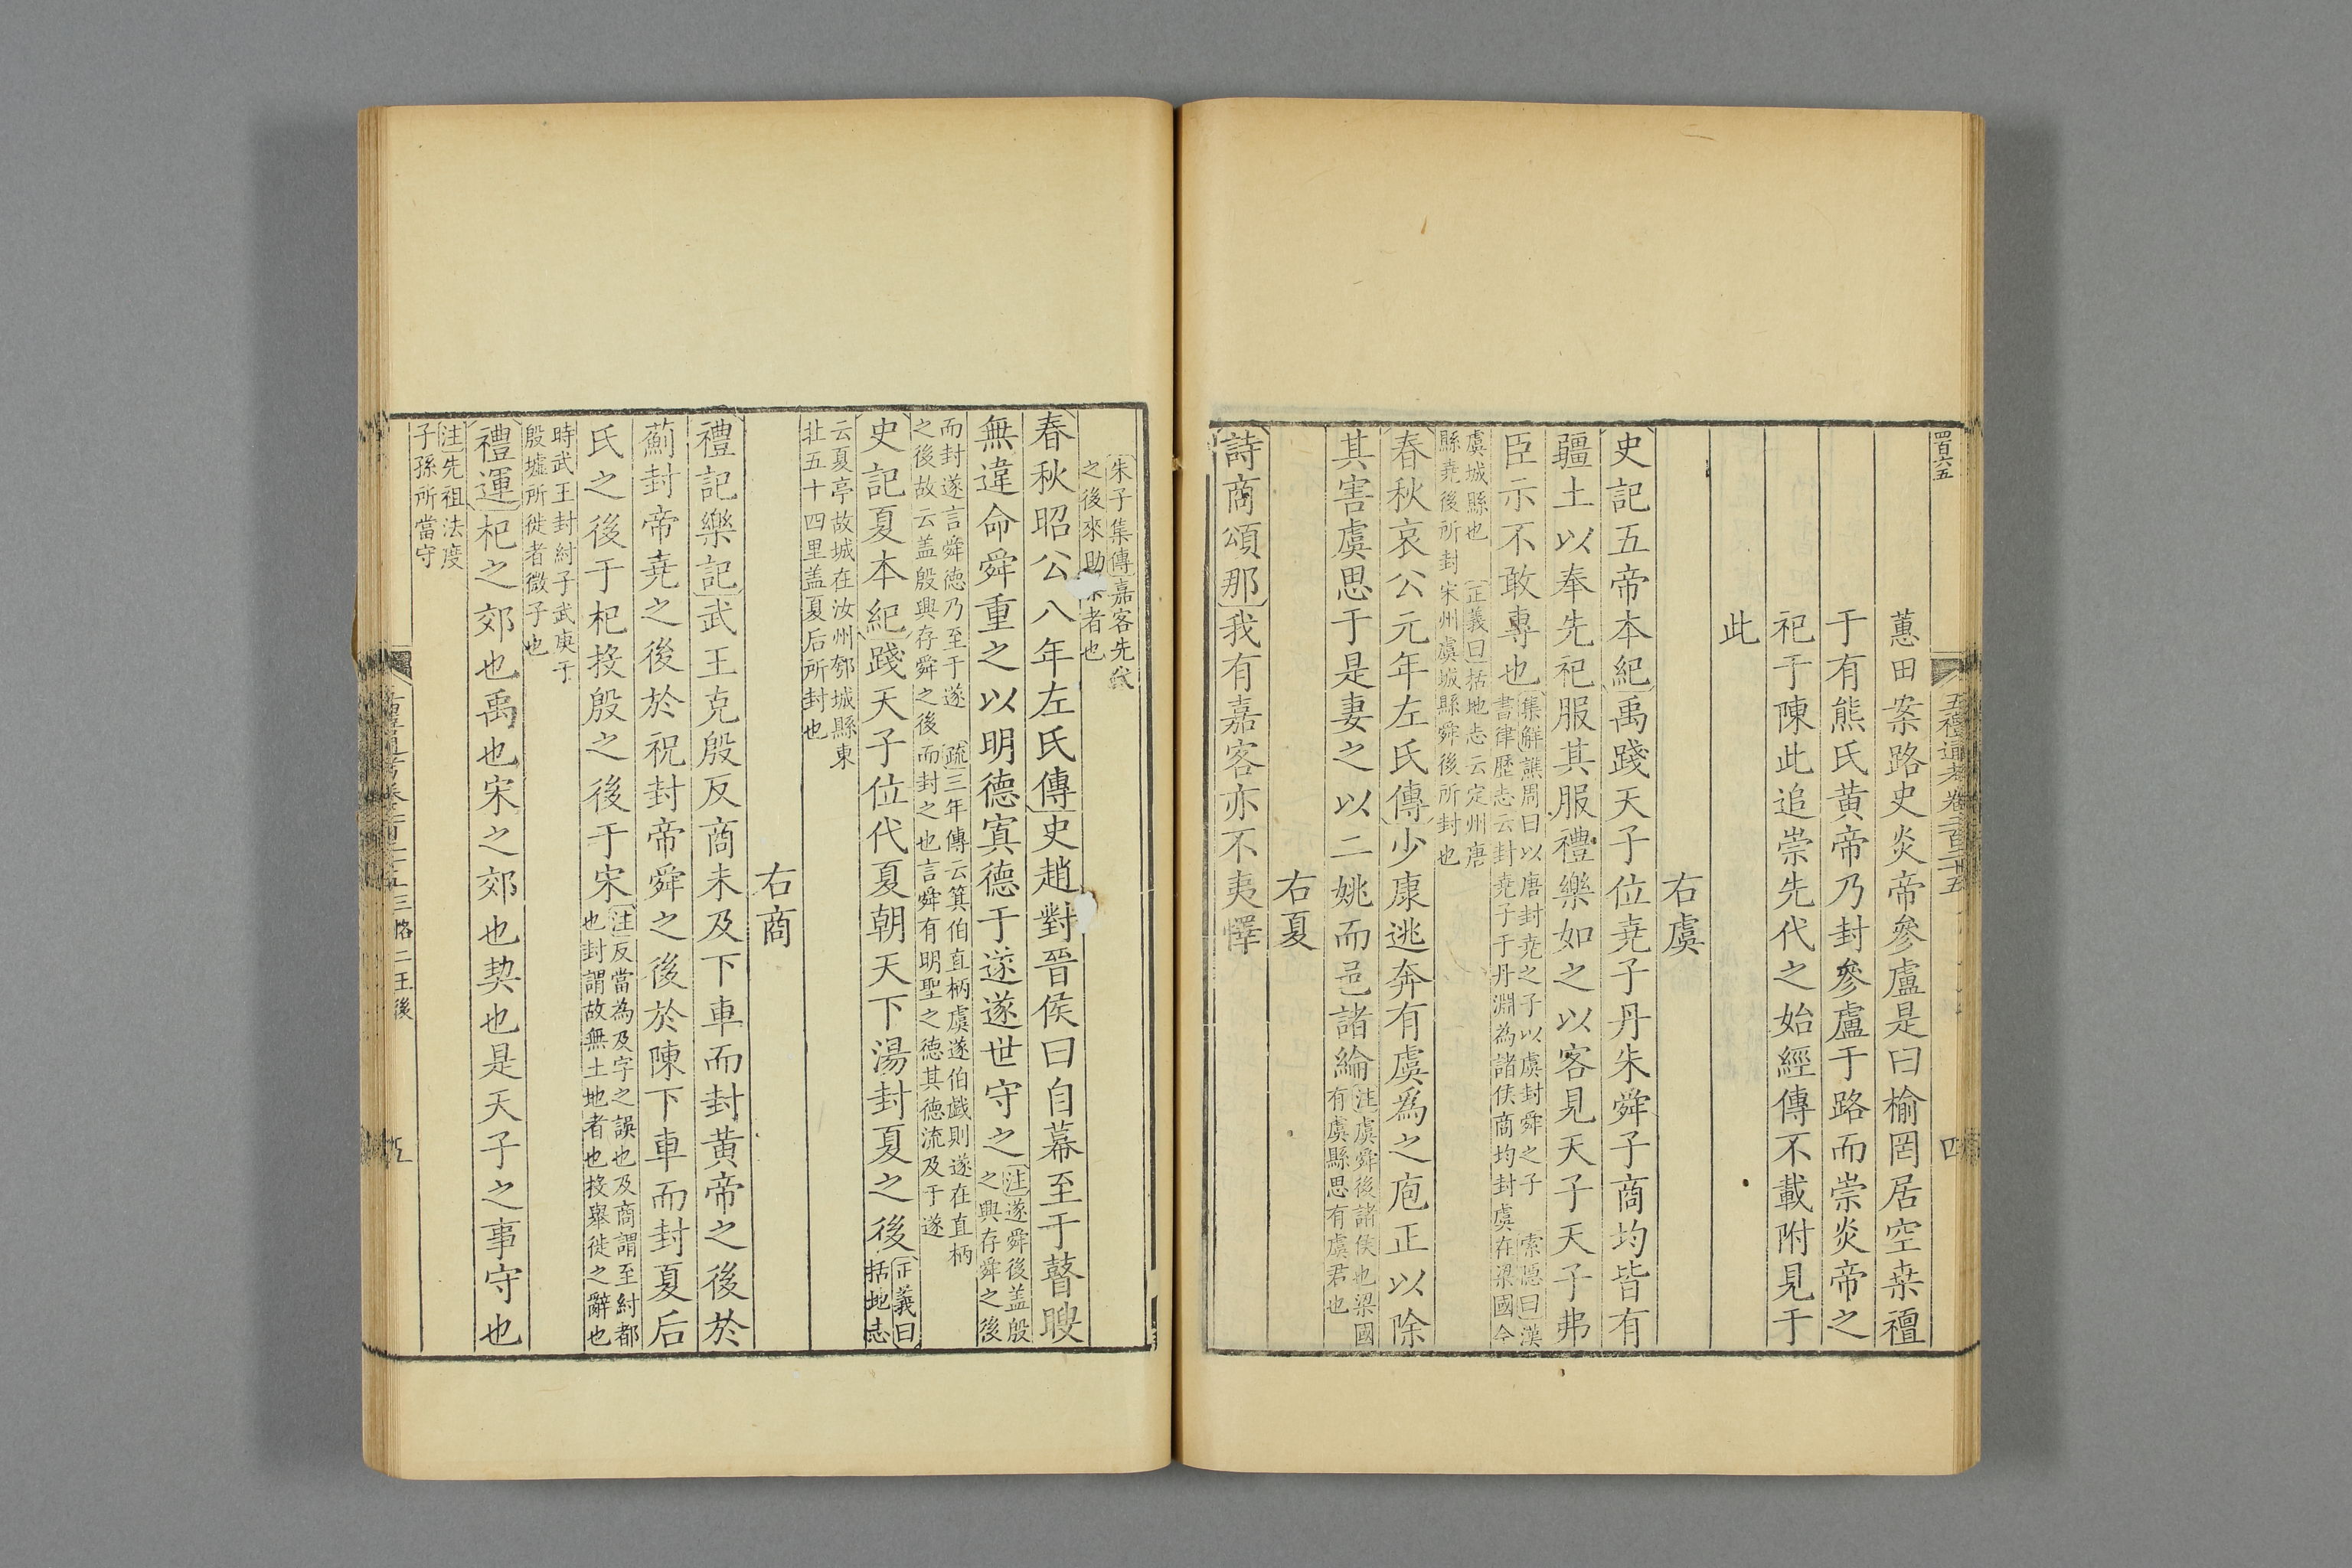 四百六五
五禮通考卷二百二十五
四
蕙田案路史炎帝參盧是曰榆罔居空桒禪
于有熊氏黃帝乃封參盧于路而崇炎帝之
祀于陳此追崇先代之始經傳不載附見于
此
右虞
史記五帝本紀禹踐天子位堯子丹朱舜子商均皆有
疆土以奉先祀服其服禮樂如之以客見天子天子弗
臣示不敢專也
集解譙周曰以唐封堯之子以虞封舜之子 索隱曰漢
書律歷志云封堯子于丹淵為諸侯商均封虞在梁國今
虞城縣也 正義曰括地志云定州唐
縣堯後所封 宋州虞城縣舜後所封也
春秋哀公元年左氏傳少康逃奔有虞為之庖正以除
其害虞思于是妻之以二姚而邑諸綸
注虞舜後諸侯也梁國
有虞縣思有虞君也
右夏
詩商頌那我有嘉客亦不夷懌
朱子集傳嘉客先代
之後來助祭者也
春秋昭公八年左氏傳史趙對晉侯曰自幕至于瞽瞍
無違命舜重之以明德寘德于遂遂世守之
注遂舜後盖殷
之興存舜之後
而封遂言舜德乃至于遂 疏三年傳云箕伯直柄虞遂伯戲則遂在直柄
之後故云盖殷興存舜之後而封之也言舜有明聖之德其德流及于遂
史記夏本紀踐天子位代夏朝天下湯封夏之後
正義曰
括地志
云夏亭故城在汝州郟城縣東
北五十四里盖夏后所封也
右商
禮記樂記武王克殷反商未及下車而封黃帝之後於
薊封帝堯之後於祝封帝舜之後於陳下車而封夏后
氏之後于杞投殷之後于宋
注反當為及字之誤也及商謂至紂都
也封謂故無土地者也投舉徙之辭也
時武王封紂子武庚于
殷墟所徙者微子也
禮運杞之郊也禹也宋之郊也契也是天子之事守也
注先祖法度
子孫所當守
三恪二王後
五